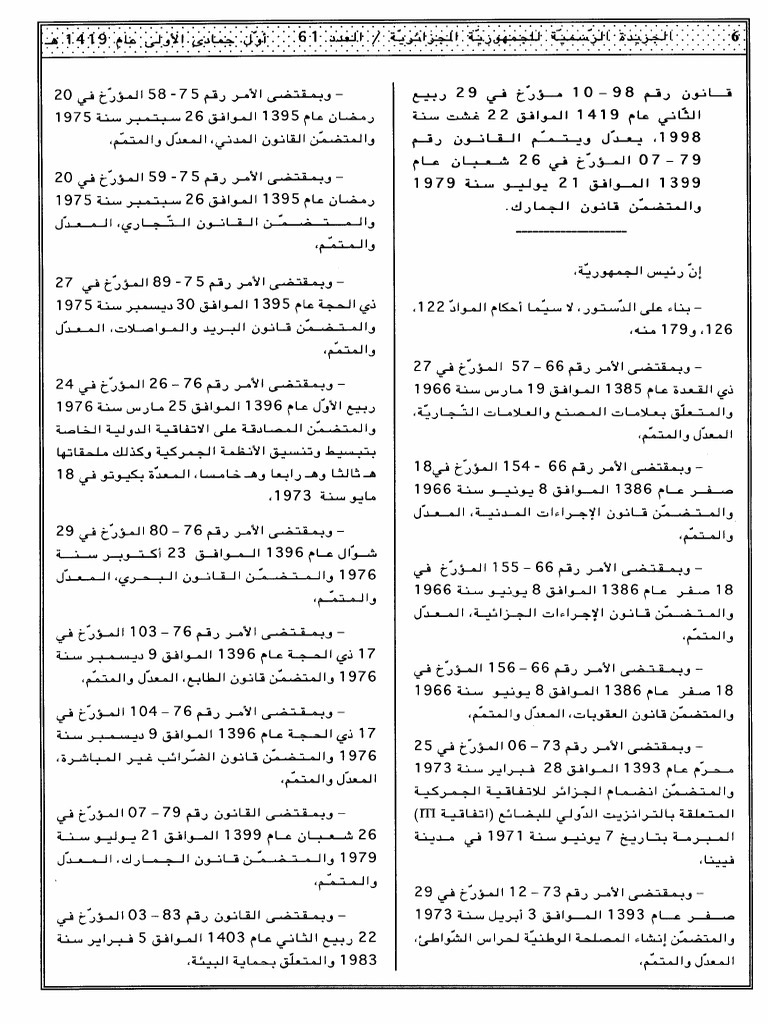 6 الجريدة الرّسميّة للجمهوريّة الجزائريّة / العدد 61 أوّل جمادى الأولى عام 1419 هـ
قانون رقم 98 – 10 مؤرّخ في 29 ربيع
الثّاني عام 1419 الموافق 22 غشت سنة
1998، يعدّل ويتمّم القانون رقم
79 – 07 المؤرّخ في 26 شعبان عام
1399 الموافق 21 يوليو سنة 1979
والمتضمّن قانون الجمارك.
إنّ رئيس الجمهوريّة،
– بناء على الدّستور، لا سيّما أحكام الموادّ 122،
126، و179 منه،
– وبمقتضى الأمر رقم 66 – 57 المؤرّخ في 27
ذي القعدة عام 1385 الموافق 19 مارس سنة 1966
والمتعلّق بعلامات المصنع والعلامات التّجاريّة،
المعدّل والمتمّم،
– وبمقتضى الأمر رقم 66 - 154 المؤرّخ في18
صفر عام 1386 الموافق 8 يونيو سنة 1966
والمتضمّن قانون الإجراءات المدنية، المعدّل
والمتمّم،
– وبمقتضى الأمر رقم 66 – 155 المؤرّخ في
18 صفر عام 1386 الموافق 8 يونيو سنة 1966
والمتضمّن قانون الإجراءات الجزائية، المعدّل
والمتمّم،
– وبمقتضى الأمر رقم 66 – 156 المؤرّخ في
18 صفر عام 1386 الموافق 8 يونيو سنة 1966
والمتضمّن قانون العقوبات، المعدّل والمتمّم،
– وبمقتضى الأمر رقم 73 – 06 المؤرّخ في 25
محرّم عام 1393 الموافق 28 فبراير سنة 1973
والمتضمّن انضمام الجزائر للاتفاقية الجمركية
المتعلقة بالترانزيت الدّولي للبضائع (اتفاقية ITI)
المبرمة بتاريخ 7 يونيو سنة 1971 في مدينة
فيينا،
– وبمقتضى الأمر رقم 73 – 12 المؤرّخ في 29
صفر عام 1393 الموافق 3 أبريل سنة 1973
والمتضمّن إنشاء المصلحة الوطنيّة لحراس الشّواطئ،
المعدّل والمتمّم،
– وبمقتضى الأمر رقم 75- 58 المؤرّخ في 20
رمضان عام 1395 الموافق 26 سبتمبر سنة 1975
والمتضمّن القانون المدني، المعدّل والمتمّم،
– وبمقتضى الأمر رقم 75- 59 المؤرّخ في 20
رمضان عام 1395 الموافق 26 سبتمبر سنة 1975
والمتضمّن القانون التّجاري، المعدّل
والمتمّم،
– وبمقتضى الأمر رقم 75- 89 المؤرّخ في 27
ذي الحجة عام 1395 الموافق 30 ديسمبر سنة 1975
والمتضمّن قانون البريد والمواصلات، المعدّل
والمتمّم،
– وبمقتضى الأمر رقم 76 – 26 المؤرّخ في 24
ربيع الأوّل عام 1396 الموافق 25 مارس سنة 1976
والمتضمّن المصادقة على الاتفاقية الدولية الخاصة
بتبسيط وتنسيق الأنظمة الجمركية وكذلك ملحقاتها
هـ ثالثا وهـ رابعا وهـ خامسا، المعدّة بكيوتو في 18
مايو سنة 1973،
– وبمقتضى الأمر رقم 76 – 80 المؤرّخ في 29
شوّال عام 1396 الموافق 23 أكتوبر سنة
1976 والمتضمّن القانون البحري، المعدّل
والمتمّم،
– وبمقتضى الأمر رقم 76 – 103 المؤرّخ في
17 ذي الحجة عام 1396 الموافق 9 ديسمبر سنة
1976 والمتضمّن قانون الطابع، المعدّل والمتمّم،
– وبمقتضى الأمر رقم 76 – 104 المؤرّخ في
17 ذي الحجة عام 1396 الموافق 9 ديسمبر سنة
1976 والمتضمّن قانون الضّرائب غير المباشرة،
المعدّل والمتمّم،
– وبمقتضى القانون رقم 79 – 07 المؤرّخ في
26 شعبان عام 1399 الموافق 21 يوليو سنة
1979 والمتضمّن قانون الجمارك، المعدّل
والمتمّم،
– وبمقتضى القانون رقم 83 – 03 المؤرّخ في
22 ربيع الثاني عام 1403 الموافق 5 فبراير سنة
1983 والمتعلّق بحماية البيئة،